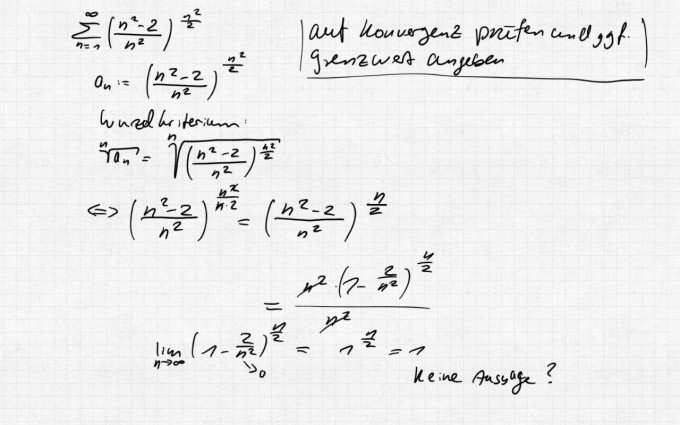 ∑_{n=1}^{∞} ((n²-2)/n²)^{n²/2}
auf Konvergenz prüfen und ggf.
Grenzwert angeben
a_n := ((n²-2)/n²)^{n²/2}
Wurzelkriterium:
ⁿ√a_n = ⁿ√(((n²-2)/n²)^{n²/2})
⇔ ((n²-2)/n²)^{n²/(n·2)} = ((n²-2)/n²)^{n/2}
= n²·(1-2/n²)^{n/2} / n²
lim_{n→∞} (1-2/n²)^{n/2} = 1^{n/2} = 1
→0
keine Aussage?